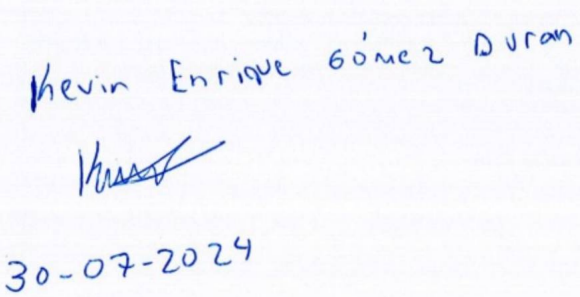 Kevin Enrique Gómez Duran
30-07-2024